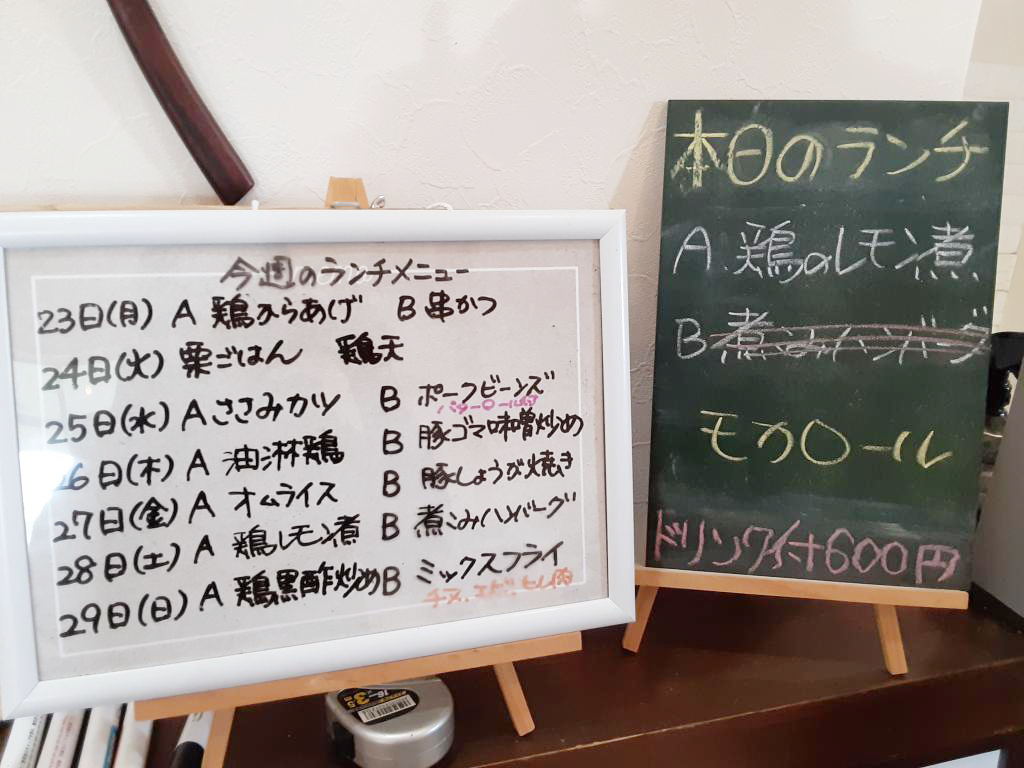 今週のランチメニュー
23日(月) A 鶏からあげ B 串かつ
24日(火) 栗ごはん 鶏天
25日(水) A ささみカツ B ポークビーンズ
バターロール付
26日(木) A 油淋鶏 B 豚ゴマ味噌炒め
27日(金) A オムライス B 豚しょうが焼き
28日(土) A 鶏レモン煮 B 煮込みハンバーグ
29日(日) A 鶏黒酢炒め B ミックスフライ
チーズ、エビ、ヒレ肉
本日のランチ
A. 鶏のレモン煮
B 煮込みハンバーグ
モカロール
ドリンク付+600円